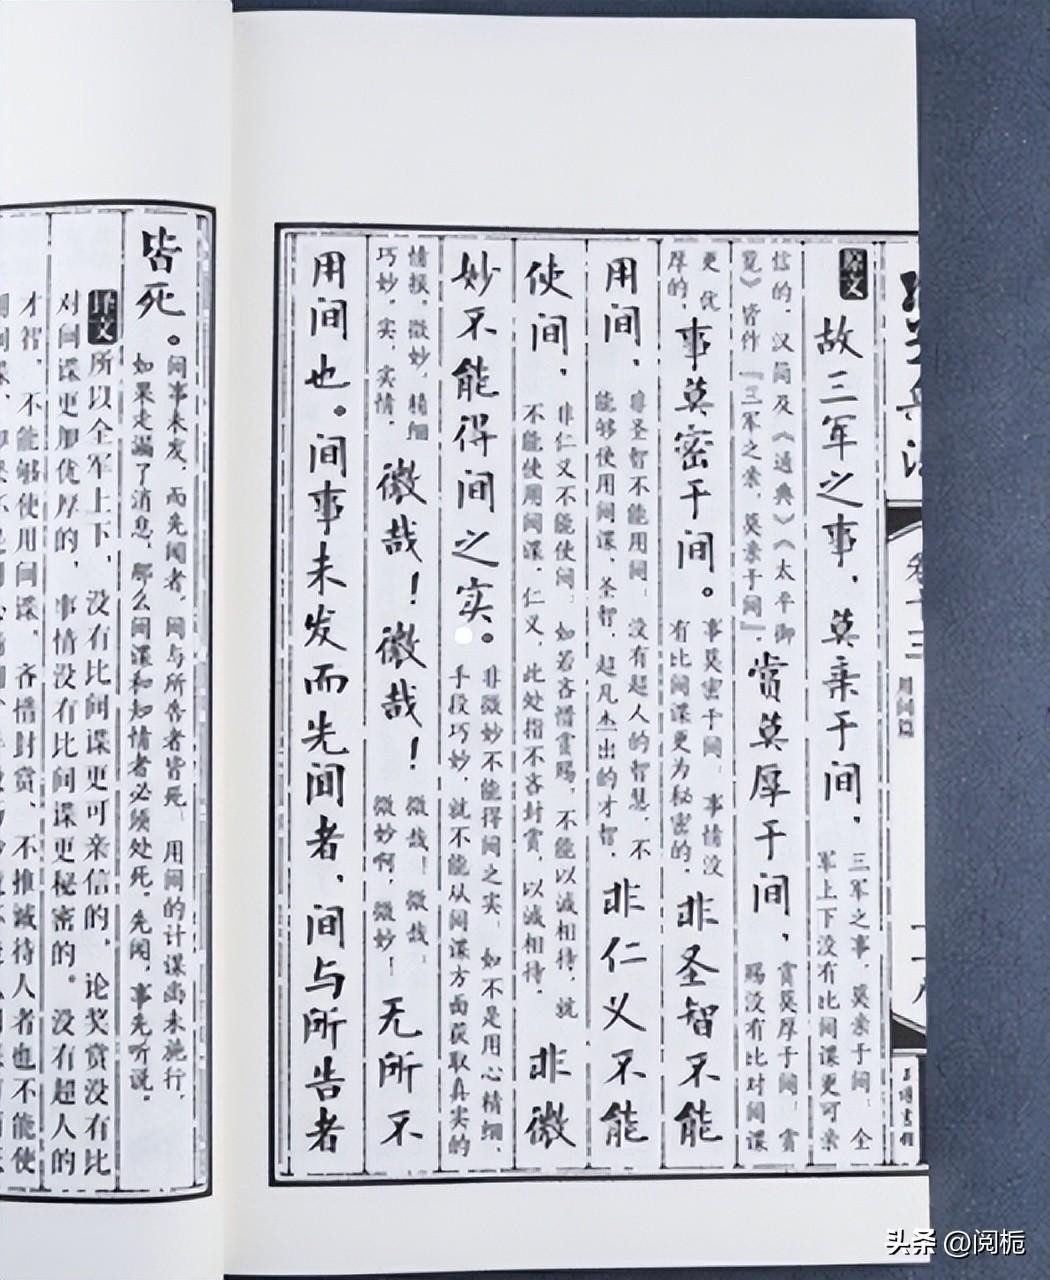 用间篇
原文
故三军之事，莫亲于间，
三军之事，莫亲于间：全
军上下没有比间谍更可亲
信的。汉简及《通典》《太平御
览》皆作『三军之亲，莫亲于间』。
赏莫厚于间，
赏莫厚于间：赏
赐没有比对间谍
更优
厚的。
事莫密于间。
事莫密于间：事情没
有比间谍更为秘密的。
非圣智不能
用间，
非圣智不能用间：没有超人的智慧，不
能够使用间谍。圣智，超凡杰出的才智。
非仁义不能
使间，
非仁义不能使间：如若吝惜赏赐，不能以诚相待，就
不能使用间谍。仁义，此处指不吝封赏，以诚相待。
非微
妙不能得间之实。
非微妙不能得间之实：如不是用心精细、
手段巧妙，就不能从间谍方面获取真实的
情报。微妙，精细
巧妙。实，实情。
微哉！微哉！
微哉！微哉：
微妙啊，微妙！
无所不
用间也。间事未发而先闻者，间与所告者
皆死。
间事未发，而先闻者，间与所告者皆死：用间的计谋尚未施行，
如果走漏了消息，那么间谍和知情者必须处死。先闻，事先听说。
译文
所以全军上下，没有比间谍更可亲信的。论奖赏没有比
对间谍更加优厚的，事情没有比间谍更秘密的。没有超人的
才智，不能够使用间谍。吝惜封赏、不推诚待人者也不能使
头条 @阅栀